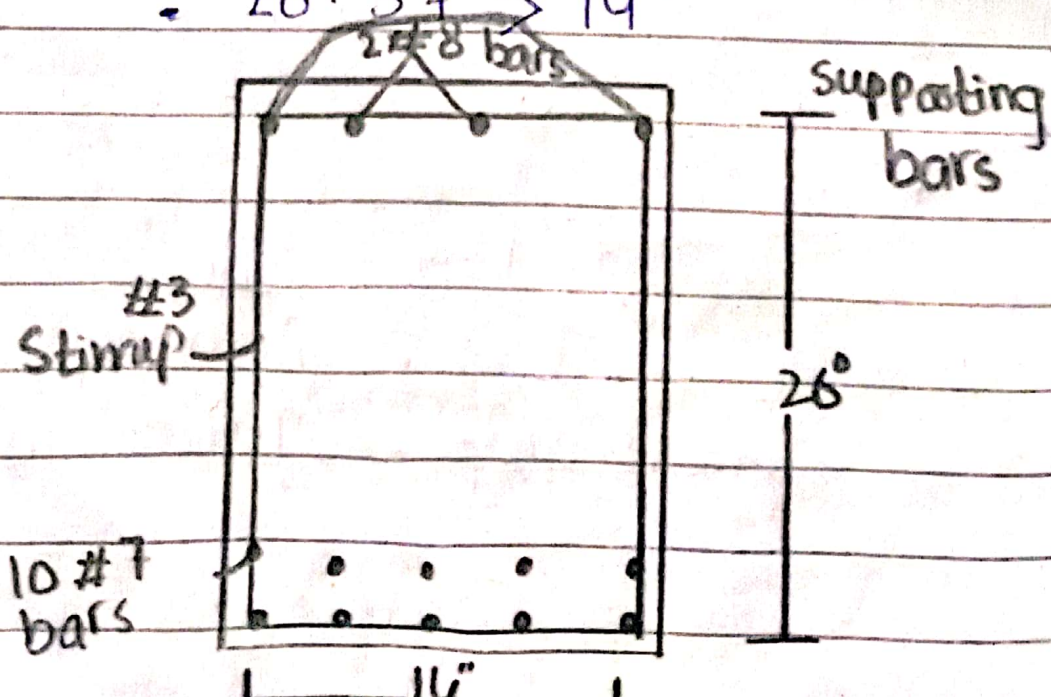 2 # 8 bars
Supporting
bars
#3
Stirrup
26"
10 #7
bars
14"